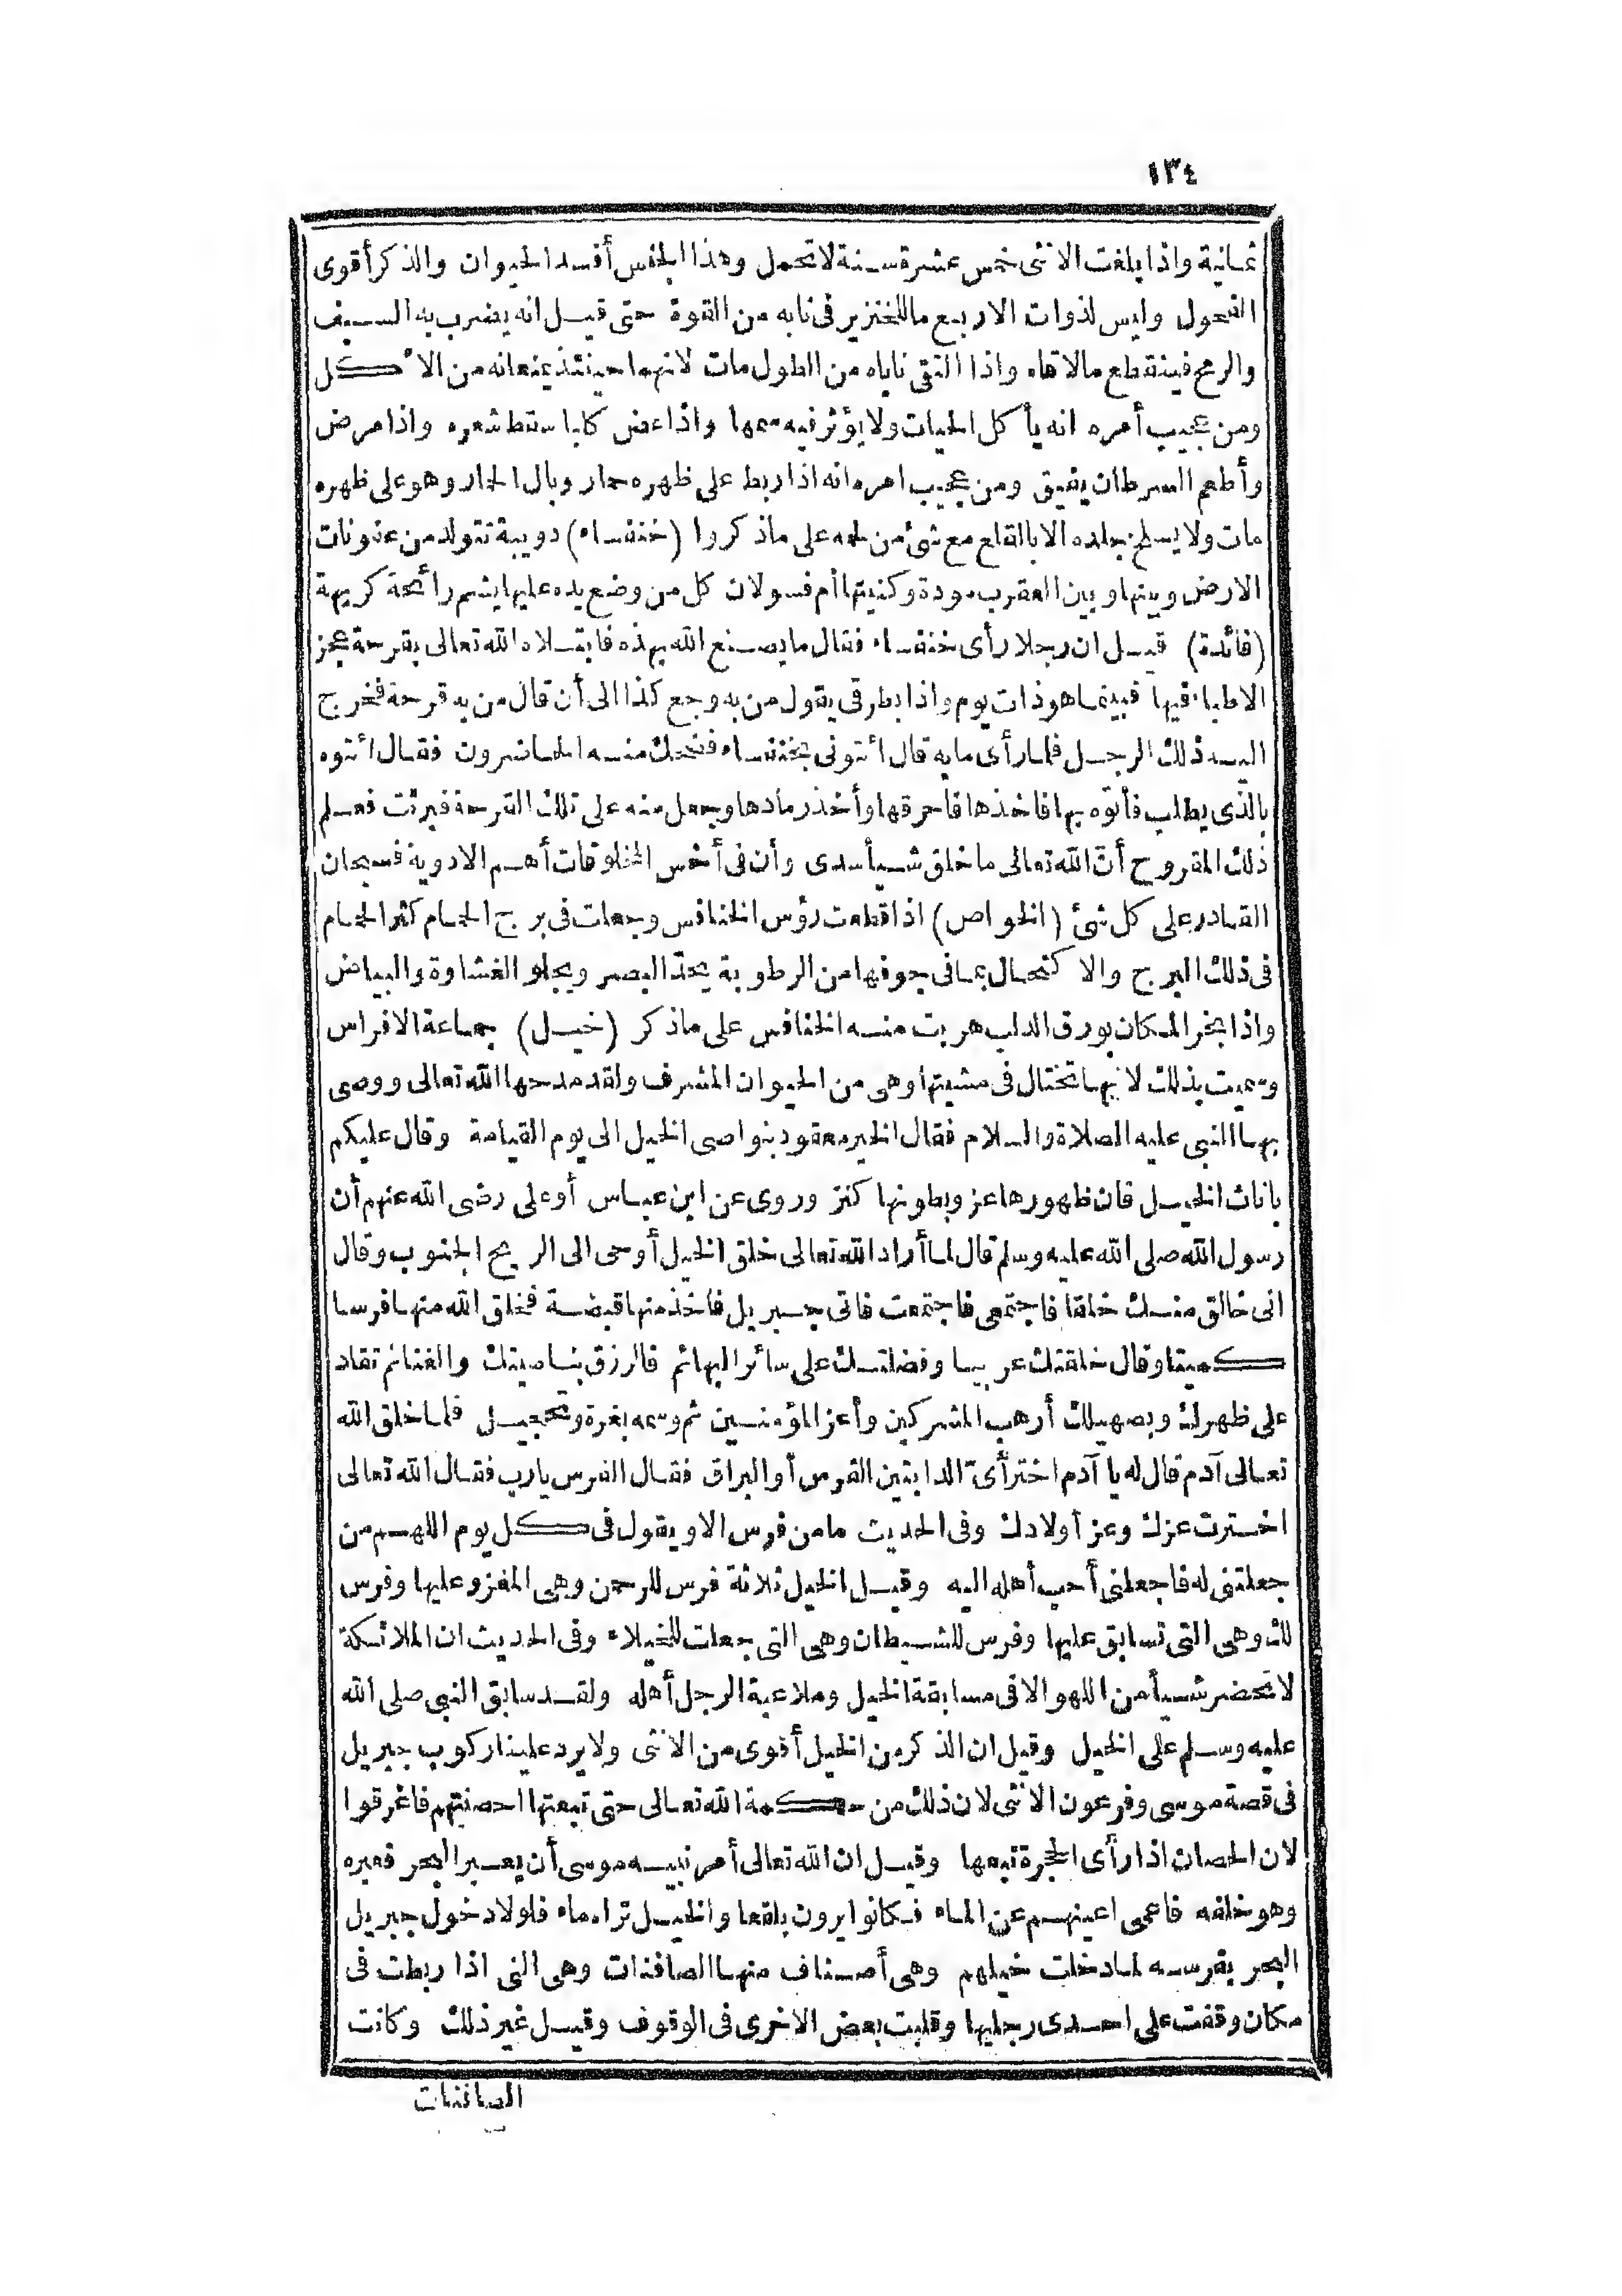 ١٣٤
ثمانية واذا بلغت الانثى خمس عشرة سنة لا تحمل وهذا الجنس أفسد الحيوان والذكر أقوى
الفحول وليس لذوات الاربع ما للخنزير فى نابه من القوة حتى قيل انه يضرب به السيف
والرمح فينقطع ما لاقاه واذا التقى ناباه من الطول مات لانهما حينئذ يمنعانه من الاكل
ومن عجيب أمره انه يأكل الحيات ولا يؤثر فيه سمها واذا عض كلبا سقط شعره واذا مرض
وأطعم السرطان يفيق ومن عجيب امره انه اذا ربط على ظهره حمار وبال الحمار وهو على ظهره
مات ولا يسلخ جلده الا بالقلع مع شئ من لحمه على ما ذكروا (خنفساء) دويبة تتولد من عفونات
الارض وبينها وبين العقرب مودة وكنيتها أم فسو لان كل من وضع يده عليها يشم رائحة كريهة
(فائدة) قيل ان رجلا رأى خنفساء فقال ما يصنع الله بهذه فابتلاه الله تعالى بقرحة عجز
الاطباء فيها فبينما هو ذات يوم واذا بطرقى يقول من به وجع كذا الى أن قال من به قرحة فخرج
اليه ذلك الرجل فلما رأى ما به قال ائتونى بخنفساء فضحك منه الحاضرون فقال ائتوه
بالذى يطلب فأتوه بها فاخذها فاحرقها وأخذ رمادها وجعل منه على تلك القرحة فبرئت فعلم
ذلك المقروح أنّ الله تعالى ما خلق شيأ سدى وأن فى أخس المخلوقات أهم الادوية فسبحان
القادر على كل شئ (الخواص) اذا قطعت رؤس الخنافس وجعلت فى برج الحمام كثر الحمام
فى ذلك البرج والاكتحال بما فى جوفها من الرطوبة يحدّ البصر ويجلو الغشاوة والبياض
واذا بخر المكان بورق الدلب هربت منه الخنافس على ما ذكر (خيل) جماعة الافراس
وسميت بذلك لانها تختال فى مشيتها وهى من الحيوان المشرف ولقد مدحها الله تعالى ووصى
بها النبى عليه الصلاة والسلام فقال الخير معقود بنواصى الخيل الى يوم القيامة وقال عليكم
باناث الخيل فان ظهورها عز وبطونها كنز وروى عن ابن عباس أو على رضى الله عنهم أن
رسول الله صلى الله عليه وسلم قال لما أراد الله تعالى خلق الخيل أوحى الى الريح الجنوب وقال
انى خالق منك خلقا فاجتمعى فاجتمعت فاتى جبريل فاخذ منها قبضة فخلق الله منها فرسا
كميتا وقال خلقتك عربيا وفضلتك على سائر البهائم فالرزق بناصيتك والغنائم تقاد
على ظهرك وبصهيلك أرهب المشركين وأعز المؤمنين ثم وسمه بغرة وتحجيل فلما خلق الله
تعالى آدم قال له يا آدم اختر أىّ الدابتين الفرس أو البراق فقال الفرس يا رب فقال الله تعالى
اخترت عزك وعز أولادك وفى الحديث ما من فرس الا ويقول فى كل يوم اللهم من
جعلتنى له فاجعلنى أحب أهله اليه وقيل الخيل ثلاثة فرس للرحمن وهى المغزو عليها وفرس
لك وهى التى تسابق عليها وفرس للشيطان وهى التى جعلت للخيلاء وفى الحديث ان الملائكة
لا تحضر شيأ من اللهو الا فى مسابقة الخيل وملاعبة الرجل أهله ولقد سابق النبى صلى الله
عليه وسلم على الخيل وقيل ان الذكر من الخيل أقوى من الانثى ولا يرد علينا ركوب جبريل
فى قصة موسى وفرعون الانثى لان ذلك من حكمة الله تعالى حتى تبعتها احصنتهم فاغرقوا
لان الحصان اذا رأى الحجرة تبعها وقيل ان الله تعالى أمر نبيه موسى أن يعبر البحر فعبره
وهو خلفه فاعمى اعينهم عن الماء فكانوا يرون بلقعا والخيل تراه ماء فلولا دخول جبريل
البحر بفرسه لما دخلت خيلهم وهى أصناف منها الصافنات وهى التى اذا ربطت فى
مكان وقفت على احدى رجليها وقلبت بعض الاخرى فى الوقوف وقيل غير ذلك وكانت
الصافنات